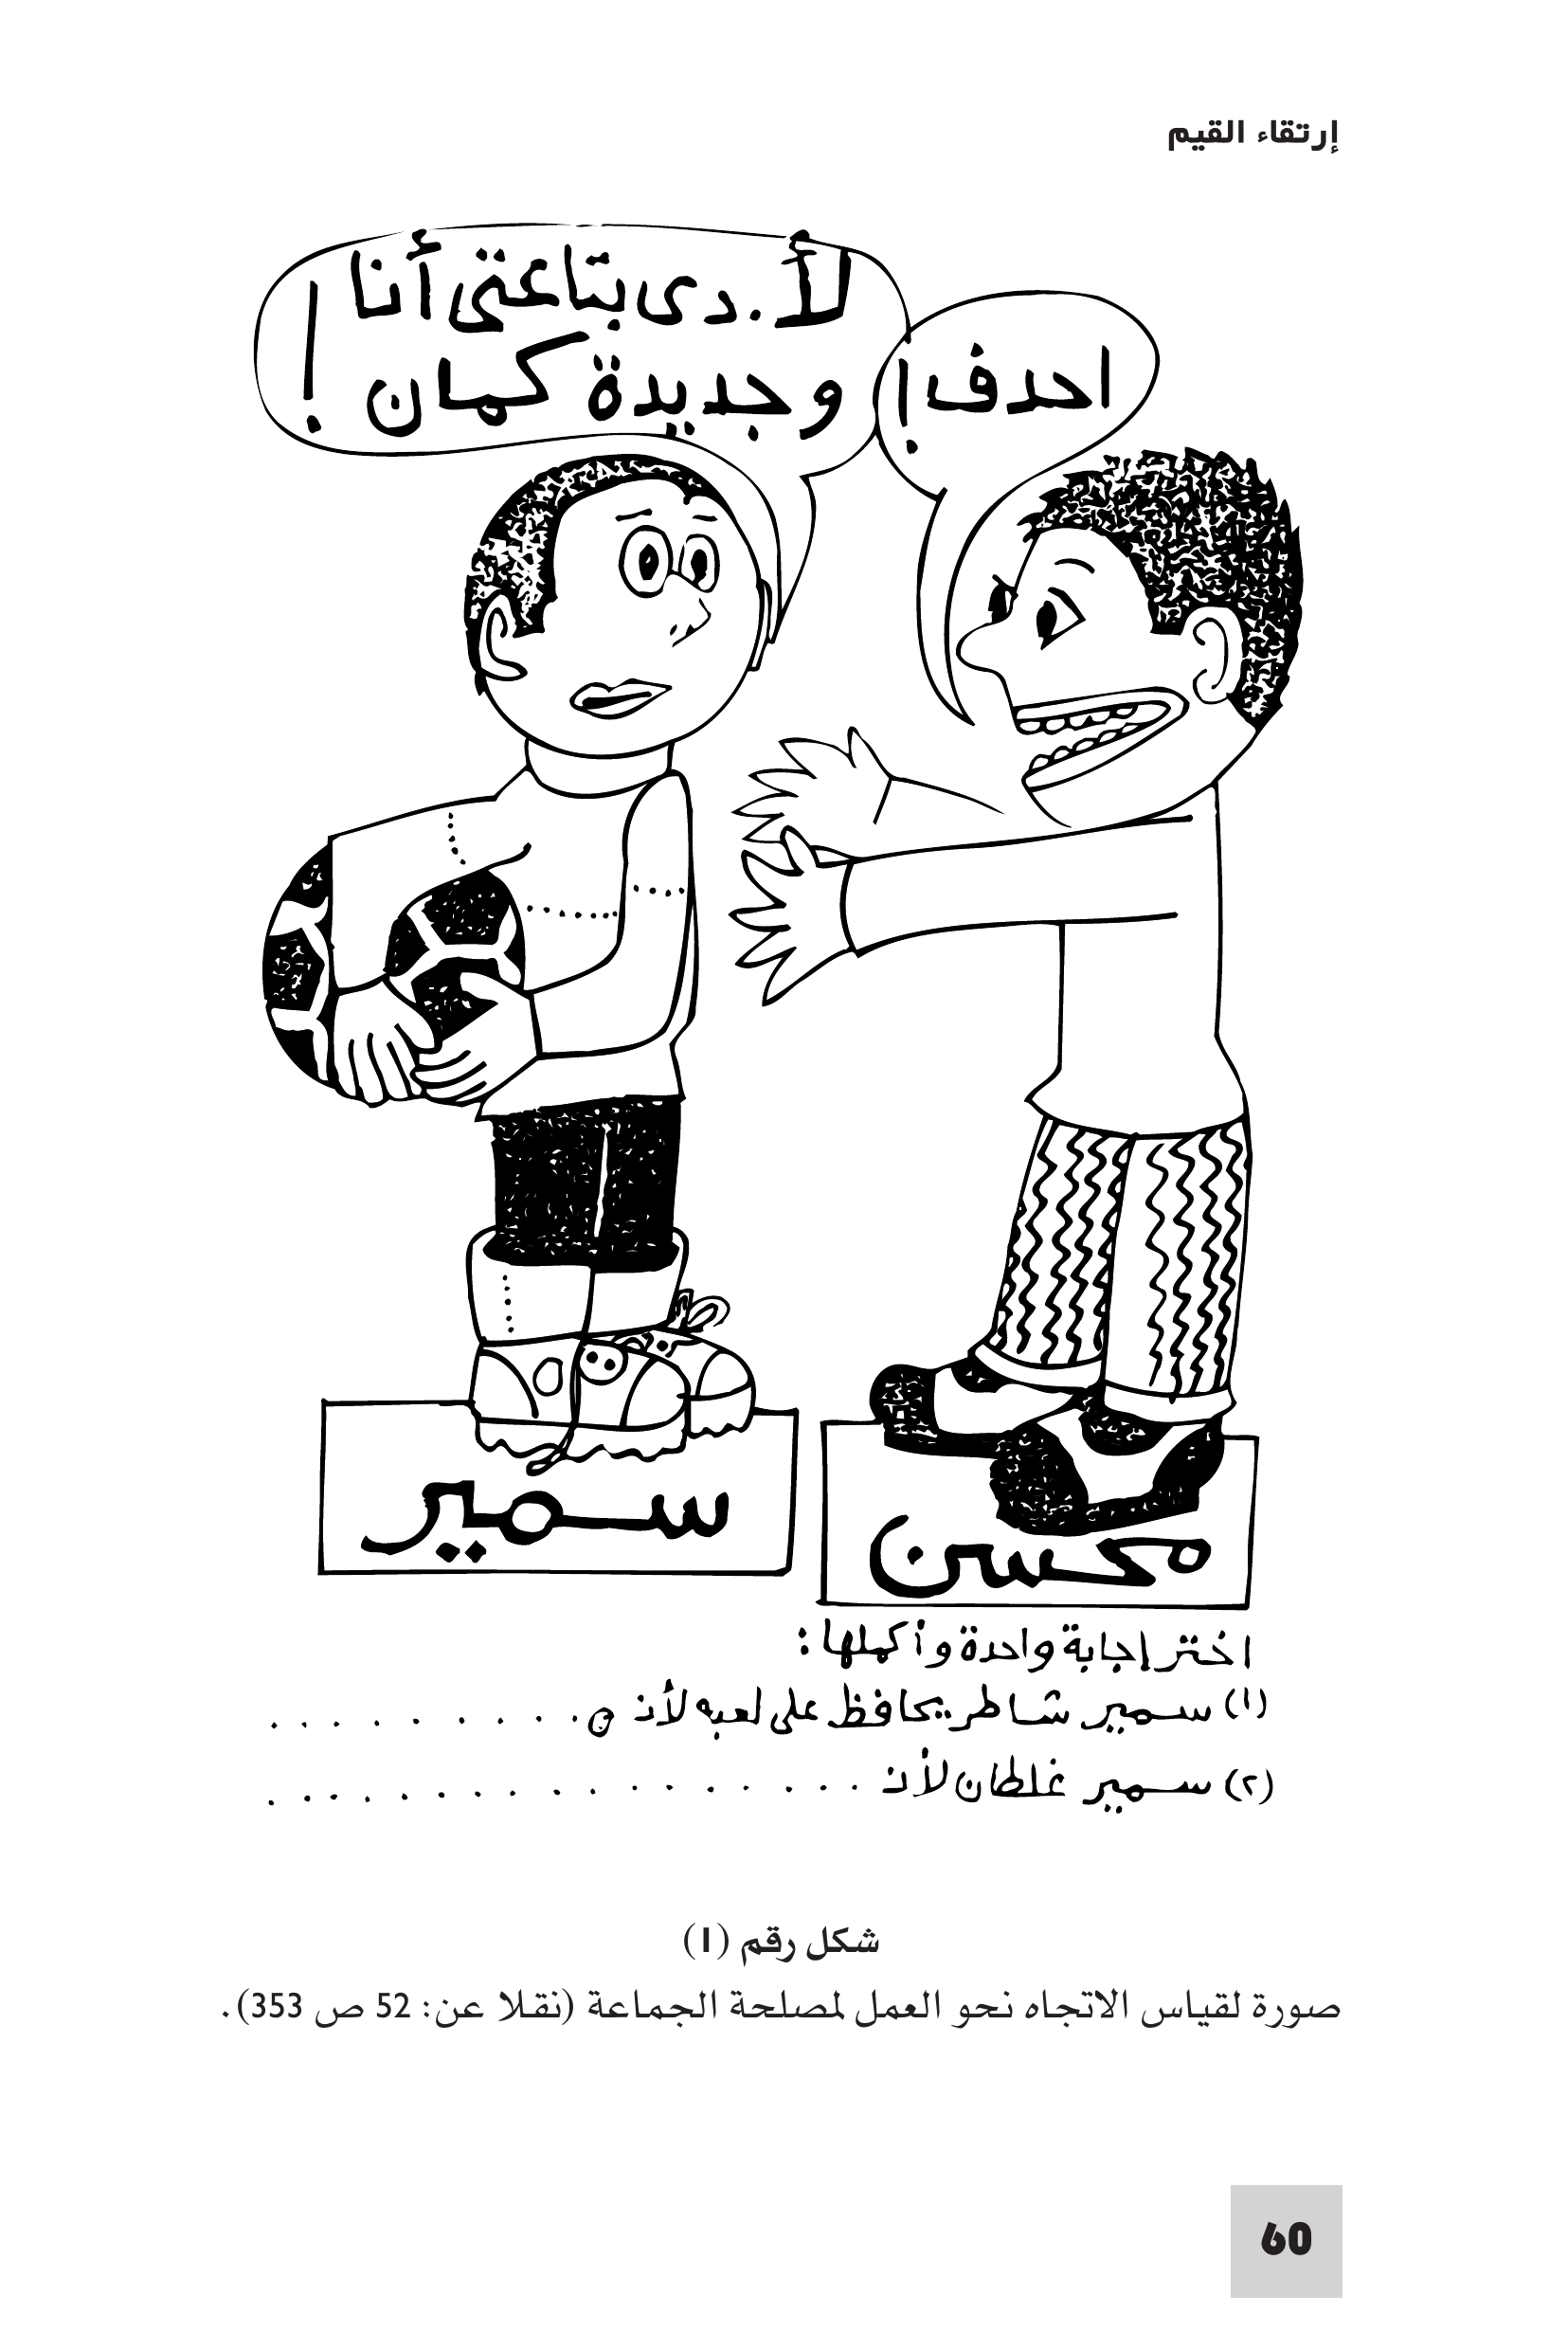 إرتقاء القيم
احدف!
لأ. دى بتاعتى أنا
وجديدة كمان!
سمير
محسن
اختر إجابة واحدة وأكملها:
(١) سمير شاطر يحافظ على لعبه لأنه . . . . . . . . . .
(٢) سمير غلطان لأنه . . . . . . . . . . . . . . . . .
شكل رقم (1)
صورة لقياس الاتجاه نحو العمل لمصلحة الجماعة (نقلا عن: 52 ص 353).
60